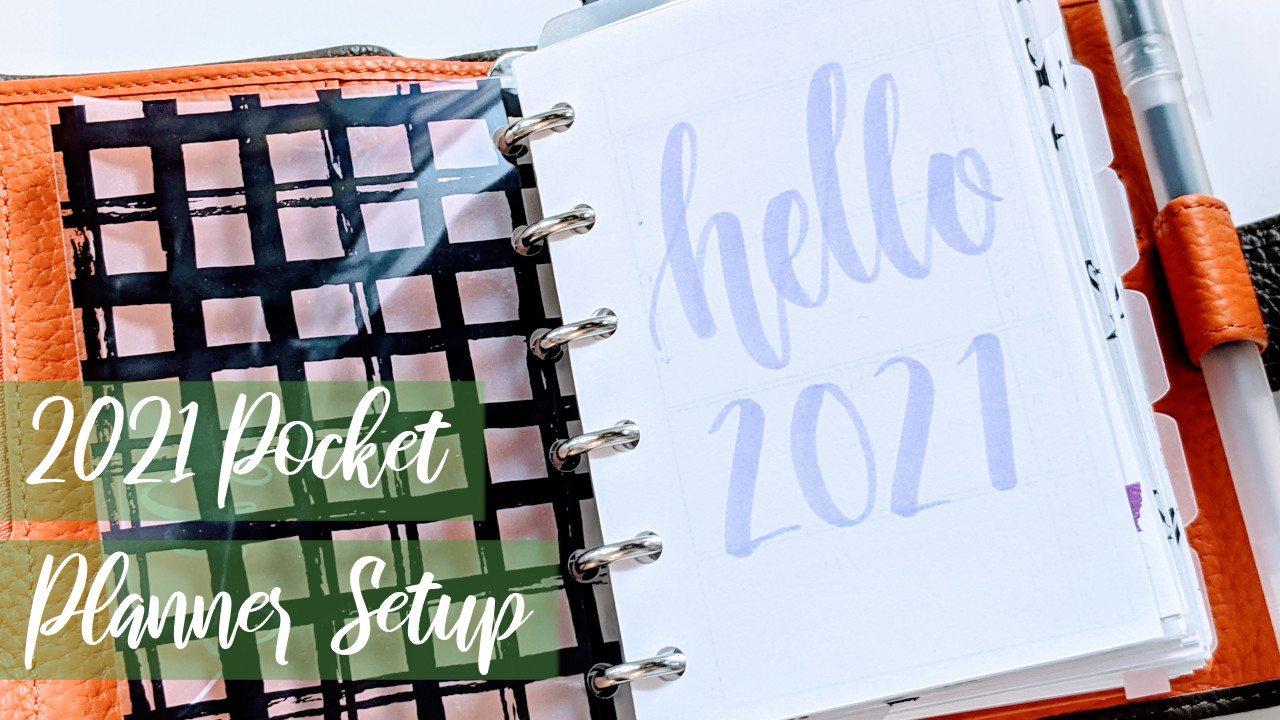 hello
2021
2021 Pocket
Planner Setup